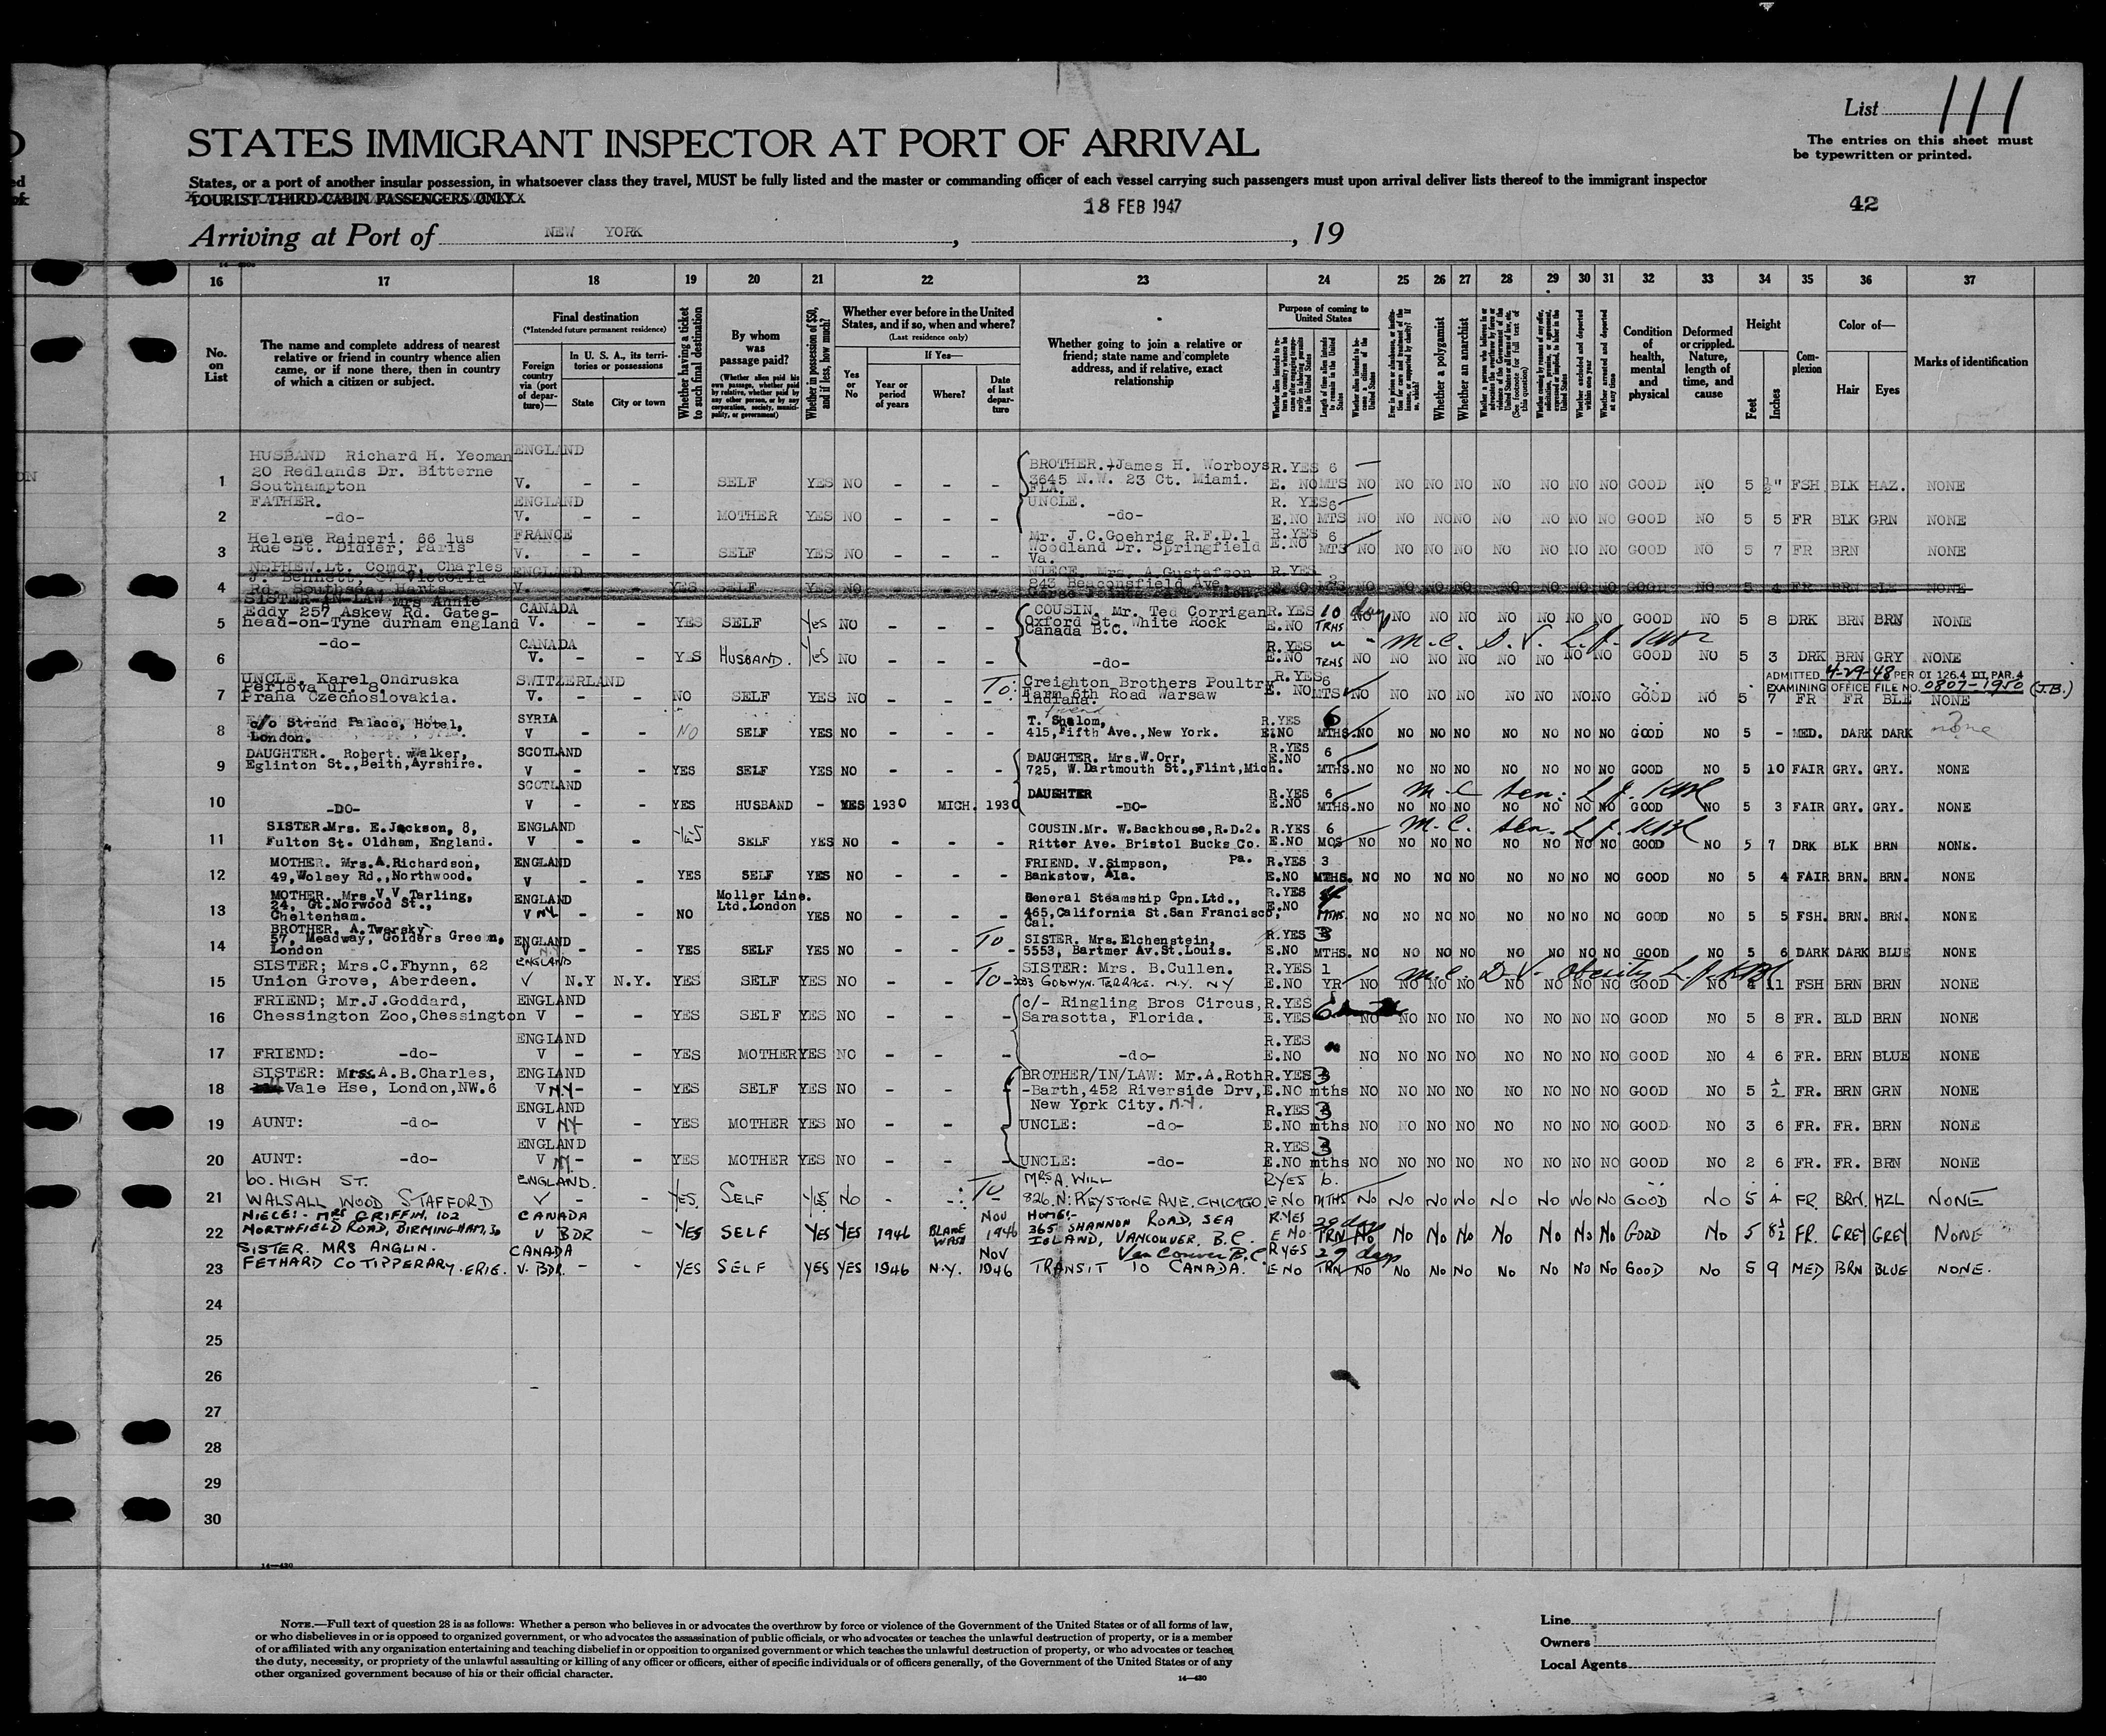 List 111
The entries on this sheet must
be typewritten or printed.
STATES IMMIGRANT INSPECTOR AT PORT OF ARRIVAL
States, or a port of another insular possession, in whatsoever class they travel, MUST be fully listed and the master or commanding officer of each vessel carrying such passengers must upon arrival deliver lists thereof to the immigrant inspector
TOURIST THIRD-CABIN PASSENGERS ONLY
18 FEB 1947
42
Arriving at Port of NEW YORK , , 19
16 17 18 19 20 21 22 23 24 25 26 27 28 29 30 31 32 33 34 35 36 37
No. on List
The name and complete address of nearest relative or friend in country whence alien came, or if none there, then in country of which a citizen or subject.
Final destination
(*Intended future permanent residence)
Foreign country via (port of departure)—
In U. S. A., its territories or possessions
State City or town
Whether having a ticket to such final destination
By whom was passage paid?
(Whether alien paid his own passage, whether paid by relative, whether paid by any other person, or by any corporation, society, municipality, or government)
Whether in possession of $50, and if less, how much?
Whether ever before in the United States, and if so, when and where?
(Last residence only)
Yes or No
If Yes—
Year or period of years Where? Date of last departure
Whether going to join a relative or friend; state name and complete address, and if relative, exact relationship
Purpose of coming to United States
Length of time alien intends to remain in the United States
Whether a polygamist
Whether an anarchist
Whether excluded and deported within one year
Whether arrested and deported at any time
Condition of health, mental and physical
Deformed or crippled. Nature, length of time, and cause
Height
Feet Inches
Complexion
Color of—
Hair Eyes
Marks of identification
1 HUSBAND Richard H. Yeoman ENGLAND
20 Redlands Dr. Bitterne
Southampton V. - - SELF YES NO - - - BROTHER. James H. Worboys
3645 N.W. 23 Ct. Miami.
FLA. R.YES 6 E. NO MTS NO NO NO NO NO NO NO NO GOOD NO 5 ½" FSH BLK HAZ. NONE
2 FATHER. ENGLAND
-do- V. - - MOTHER YES NO - - - UNCLE.
-do- R. YES 6 E.NO MTS NO NO NO NO NO NO NO NO GOOD NO 5 5 FR BLK GRN NONE
3 Helene Raineri. 66 lus FRANCE
Rue St. Didier, Paris V. - - SELF YES NO - - - Mr. J.C.Goehrig R.F.D.1
Woodland Dr. Springfield
Va. R.YES 6 E.NO MTS NO NO NO NO NO NO NO NO GOOD NO 5 7 FR BRN NONE
4 NEPHEW.Lt. Comdr. Charles ENGLAND
J. Bennett, 37 Victoria
Rd. Southsea. Hants. V. - - YES SELF YES NO - - - NIECE. Mrs. A Gustafson
843 Beaconsfield Ave.
R.YES E.NO MTS NO NO NO NO NO NO NO NO GOOD NO 5 4 FR BRN BLE NONE
5 SISTER-IN-LAW Mrs Annie CANADA
Eddy 257 Askew Rd. Gates-
head-on-Tyne durham england V. - - YES SELF Yes NO - - - COUSIN. Mr. Ted Corrigan
Oxford St. White Rock
Canada B.C. R.YES 10 day E.NO TRNS NO NO NO NO NO NO NO NO GOOD NO 5 8 DRK BRN BRN NONE
M.C. D.V. L.J. KMR
6 -do- CANADA
V. - - YES HUSBAND. Yes NO - - - -do- R.YES " E.NO TRNS NO NO NO NO NO NO NO NO GOOD NO 5 3 DRK BRN GRY NONE
ADMITTED 4-29-48 PER OI 126.4 III PAR. 4
EXAMINING OFFICE FILE NO. 0807-1950 (J.B.)
7 UNCLE. Karel Ondruska SWITZERLAND
Perlova ul. 8.
Praha Czechoslovakia. V. - - NO SELF YES NO - - - To: Creighton Brothers Poultry
Farm 6th Road Warsaw
Indiana. R.YES 6 E. NO MTS NO NO NO NO NO NO NO NO GOOD NO 5 7 FR FR BLE NONE
8 c/o Strand Palace, Hotel, SYRIA
London. V - - NO SELF YES NO - - - friend
T. Shalom,
415, Fifth Ave., New York. R.YES 6 E.NO MTHS. NO NO NO NO NO NO NO NO GOOD NO 5 - MED. DARK DARK none
9 DAUGHTER. Robert walker, SCOTLAND
Eglinton St., Beith, Ayrshire. V - - YES SELF YES NO - - - DAUGHTER. Mrs.W.Orr,
725, W.Dartmouth St., Flint, Mich. R.YES 6 E.NO MTHS. NO NO NO NO NO NO NO NO GOOD NO 5 10 FAIR GRY. GRY. NONE
M C Sen: L J. KMR
10 -DO- SCOTLAND
V - - YES HUSBAND - YES 1930 MICH. 1930 DAUGHTER
-DO- R.YES 6 E.NO MTHS. NO NO NO NO NO NO NO NO GOOD NO 5 3 FAIR GRY. GRY. NONE
M.C. Sen. L J. KMR
11 SISTER.Mrs. E.Jackson, 8, ENGLAND
Fulton St. Oldham, England. V - - YES SELF YES NO - - - COUSIN.Mr. W.Backhouse, R.D.2.
Ritter Ave. Bristol Bucks Co.
Pa. R.YES 6 E.NO MOS NO NO NO NO NO NO NO NO GOOD NO 5 7 DRK BLK BRN NONE.
12 MOTHER. Mrs.A.Richardson, ENGLAND
49, Wolsey Rd., Northwood. V - - YES SELF YES NO - - - FRIEND. V.Simpson,
Bankstow, Ala. R.YES 3 E.NO MTHS. NO NO NO NO NO NO NO NO GOOD NO 5 4 FAIR BRN. BRN. NONE
13 MOTHER. Mrs.V.V.Tarling, ENGLAND
24, Gt.Norwood St.,
Cheltenham. V NY - - NO Moller Line.
Ltd.London YES NO - - - General Steamship Cpn.Ltd.,
465, California St.San Francisco,
Cal. R.YES E.NO MTHS. NO NO NO NO NO NO NO NO GOOD NO 5 5 FSH. BRN. BRN. NONE
14 BROTHER. A.Twersky ENGLAND
57, Meadway, Golders Green,
London V - - YES SELF YES NO - - - To SISTER. Mrs.Elchenstein,
5553, Bartmer Av.St.Louis. R.YES 3 E.NO MTHS. NO NO NO NO NO NO NO NO GOOD NO 5 6 DARK DARK BLUE NONE
15 SISTER; Mrs.C.Fhynn, 62 ENGLAND
Union Grove, Aberdeen. V N.Y N.Y. YES SELF YES NO - - - To SISTER: Mrs. B.Cullen.
GODWYN. TERRACE. N.Y. NY R.YES 1 E.NO YR NO NO NO NO NO NO NO NO GOOD NO 4 11 FSH BRN BRN NONE
M.C. D.V. Obesity L.J. KMR
16 FRIEND; Mr.J.Goddard, ENGLAND
Chessington Zoo, Chessington V - - YES SELF YES NO - - - c/- Ringling Bros Circus,
Sarasotta, Florida. R.YES E.YES 6 NO NO NO NO NO NO NO NO GOOD NO 5 8 FR. BLD BRN NONE
17 FRIEND: -do- ENGLAND
V - - YES MOTHER YES NO - - - -do- R.YES E.NO " NO NO NO NO NO NO NO NO GOOD NO 4 6 FR. BRN BLUE NONE
18 SISTER: Mrs. A.B.Charles, ENGLAND
Vale Hse, London, NW.6 V N.Y - - YES SELF YES NO - - - BROTHER/IN/LAW: Mr.A.Roth
-Barth, 452 Riverside Drv,
New York City. N.Y. R.YES 3 E.NO mths NO NO NO NO NO NO NO NO GOOD NO 5 ½ FR. BRN GRN NONE
19 AUNT: -do- ENGLAND
V NY - - YES MOTHER YES NO - - - UNCLE: -do- R.YES 3 E.NO mths NO NO NO NO NO NO NO NO GOOD NO 3 6 FR. FR. BRN NONE
20 AUNT: -do- ENGLAND
V NY - - YES MOTHER YES NO - - - UNCLE: -do- R.YES 3 E.NO mths NO NO NO NO NO NO NO NO GOOD NO 2 6 FR. FR. BRN NONE
21 60. HIGH ST. ENGLAND.
WALSALL WOOD STAFFORD V - - YES. SELF YES NO - - - To MRS A. WILL
826. N. KEYSTONE AVE. CHICAGO. R YES 6. E NO MTHS NO NO NO NO NO NO NO NO GOOD NO 5 4 FR. BRN. HZL NONE
22 NIECE:- MRS GRIFFIN, 102 CANADA
NORTHFIELD ROAD, BIRMINGHAM, 30 V BDR - YES SELF YES YES 1946 BLANE WASH NOV 1946 HOME:-
365 SHANNON ROAD, SEA
ISLAND, VANCOUVER. B.C. R.YES 29 days E NO TRN NO NO NO NO NO NO NO NO GOOD NO 5 8½ FR. GREY GREY NONE
23 SISTER. MRS ANGLIN. CANADA
FETHARD CO TIPPERARY. EIRE. V. BDR. - - YES SELF YES YES 1946 N.Y. NOV 1946 Vancouver B.C.
TRANSIT TO CANADA. R YES 29 days E NO TRN NO NO NO NO NO NO NO NO GOOD NO 5 9 MED BRN BLUE NONE.
24
25
26
27
28
29
30
14—430
NOTE.—Full text of question 28 is as follows: Whether a person who believes in or advocates the overthrow by force or violence of the Government of the United States or of all forms of law,
or who disbelieves in or is opposed to organized government, or who advocates the assassination of public officials, or who advocates or teaches the unlawful destruction of property, or is a member
of or affiliated with any organization entertaining and teaching disbelief in or opposition to organized government or which teaches the unlawful destruction of property, or who advocates or teaches
the duty, necessity, or propriety of the unlawful assaulting or killing of any officer or officers, either of specific individuals or of officers generally, of the Government of the United States or of any
other organized government because of his or their official character.
14—430
Line
Owners
Local Agents